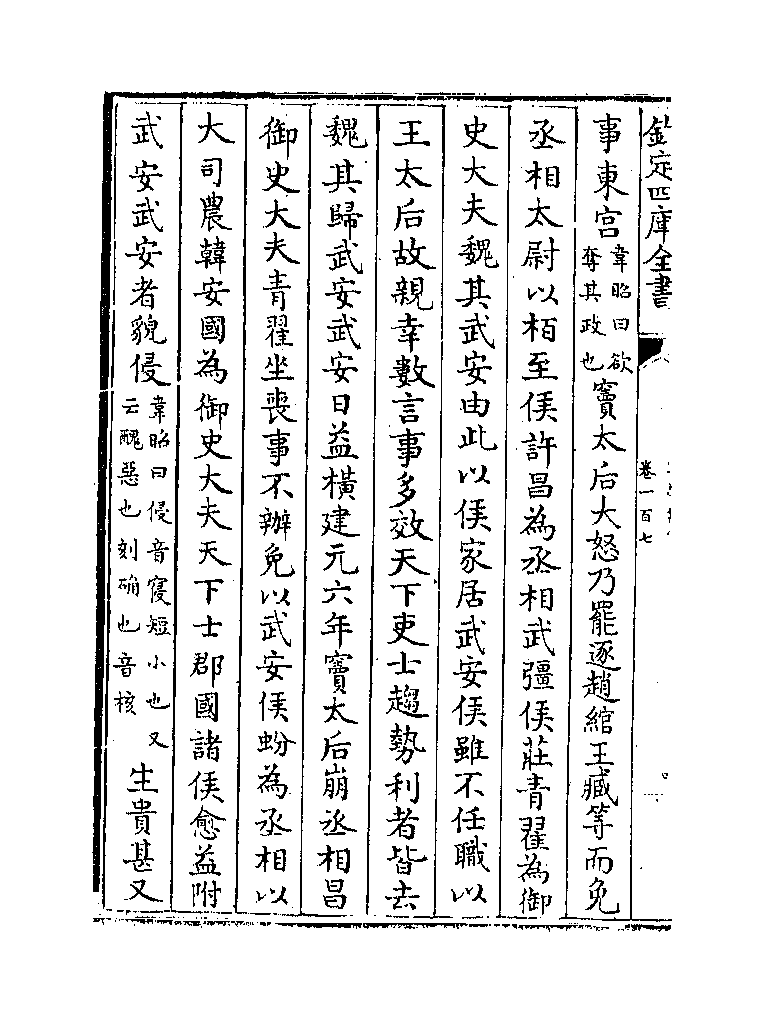 欽定四庫全書
卷一百七
事東宮韋昭曰欲奪其政也竇太后大怒乃罷逐趙綰王臧等而免
丞相太尉以栢至侯許昌為丞相武彊侯莊青翟為御
史大夫魏其武安由此以侯家居武安侯雖不任職以
王太后故親幸數言事多效天下吏士趨勢利者皆去
魏其歸武安武安日益橫建元六年竇太后崩丞相昌
御史大夫青翟坐喪事不辦免以武安侯蚡為丞相以
大司農韓安國為御史大夫天下士郡國諸侯愈益附
武安武安者貌侵韋昭曰侵音寑短小也又云醜惡也刻确也音核生貴甚又